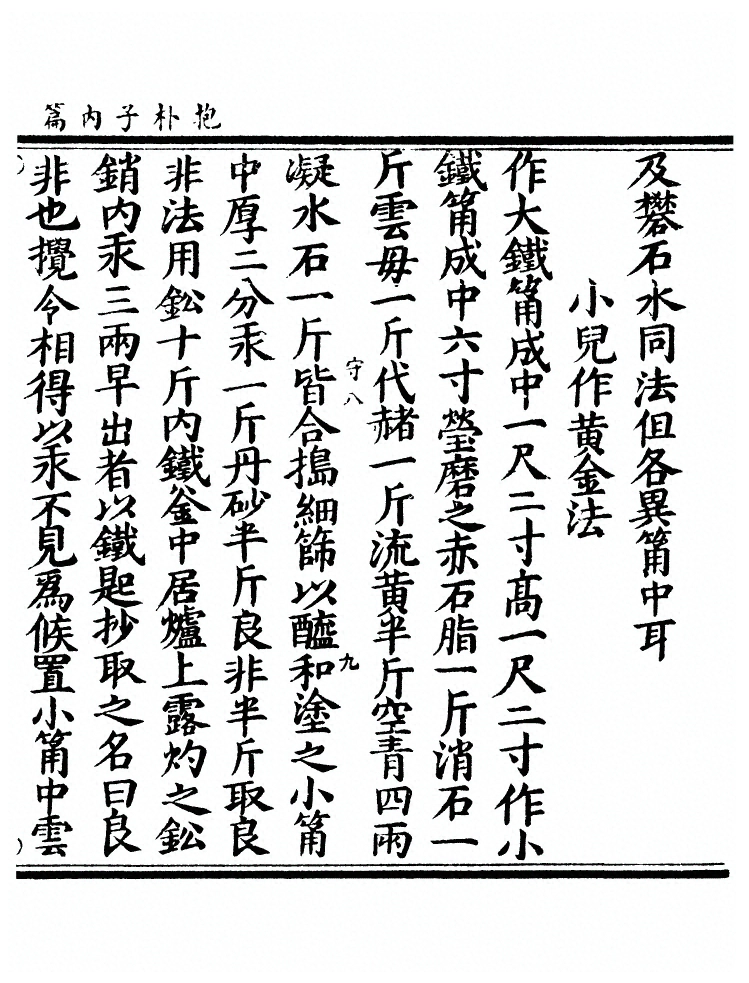 抱朴子内篇
及礬石水同法但各異筩中耳
小兒作黄金法
作大鐵筩成中一尺二寸髙一尺二寸作小
鐵筩成中六寸瑩磨之赤石脂一斤消石一
斤雲母一斤代赭一斤流黄半斤空青四兩
守八
凝水石一斤皆合搗細篩以醯和塗之小筩
九
中厚二分汞一斤丹砂半斤良非半斤取良
非法用鈆十斤内鐵釜中居爐上露灼之鈆
銷内汞三兩早出者以鐵匙抄取之名曰良
非也攪令相得以汞不見爲候置小筩中雲